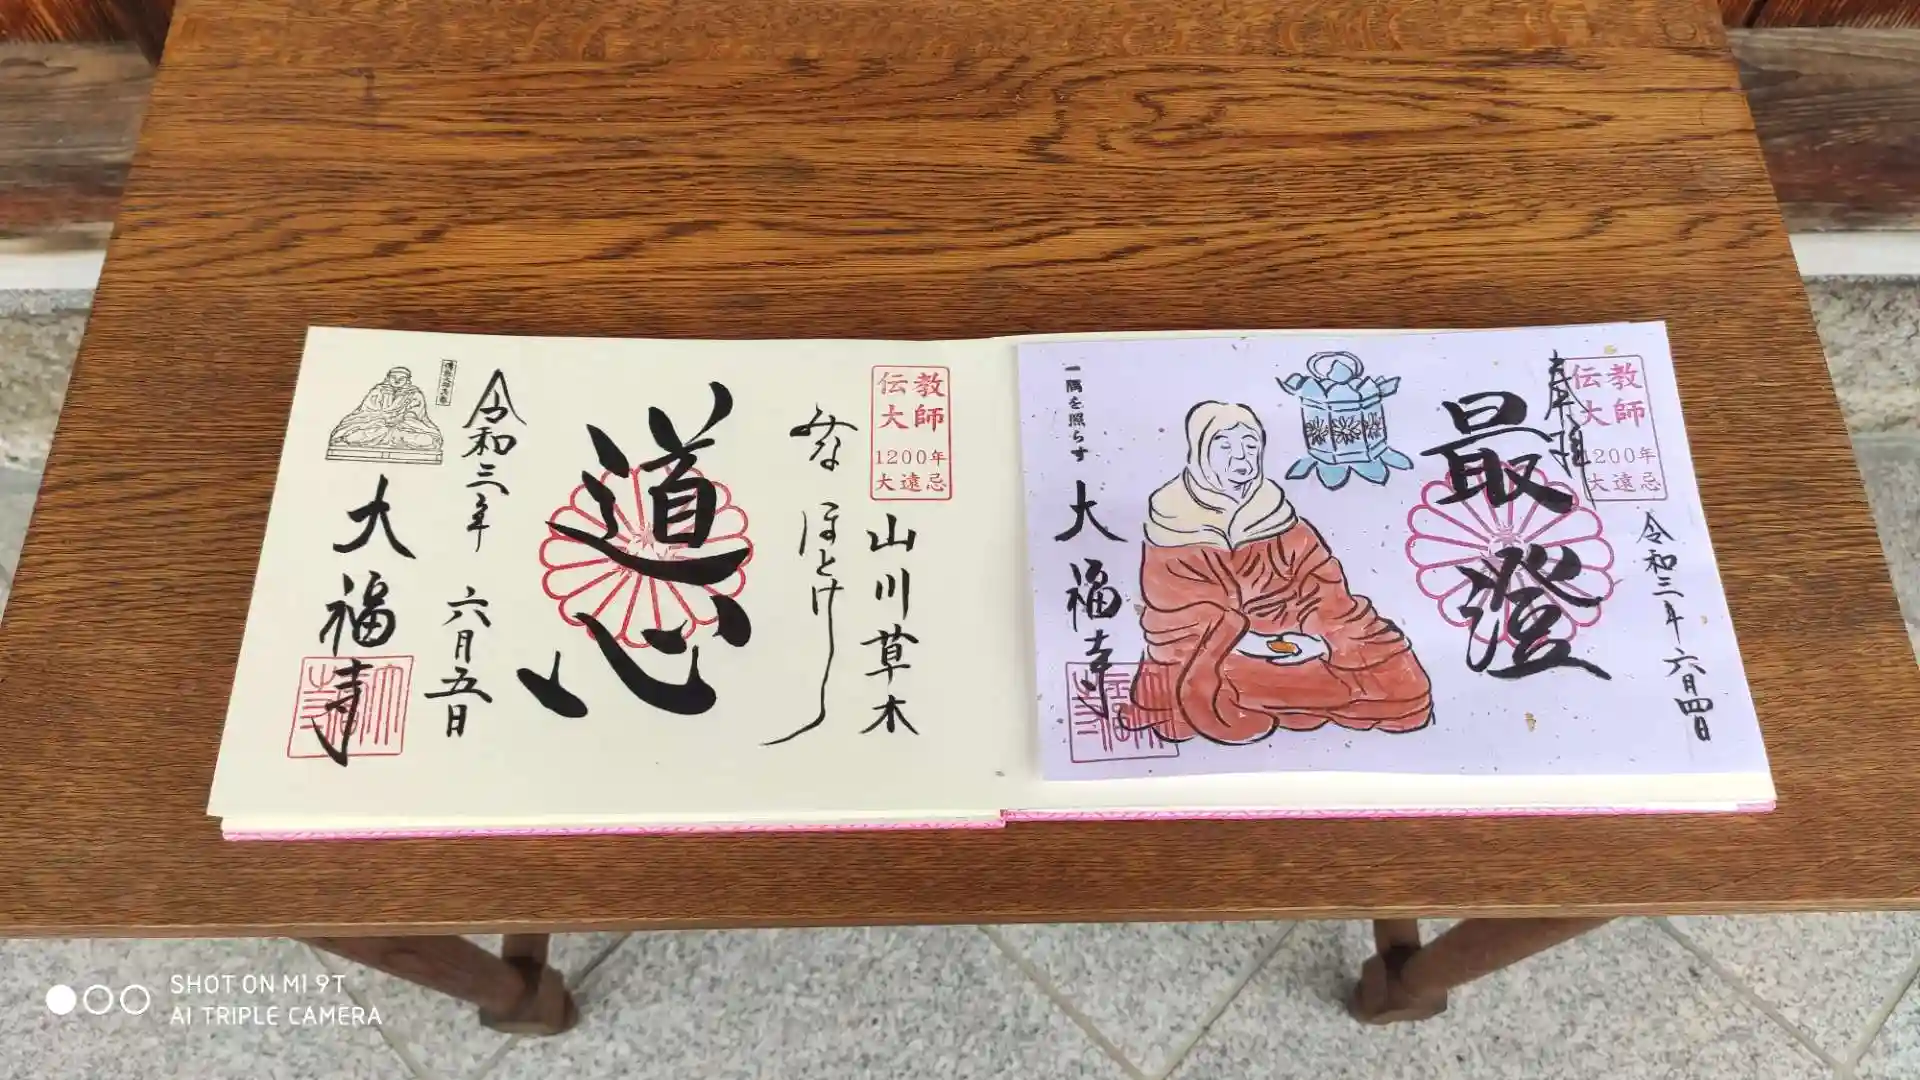 奉拝
伝教
大師
1200年
大遠忌
令和三年六月四日
最澄
一隅を照らす
大福寺
伝教
大師
1200年
大遠忌
山川草木
みな
ほとけ
道心
令和三年
六月五日
大福寺
SHOT ON MI 9T
AI TRIPLE CAMERA